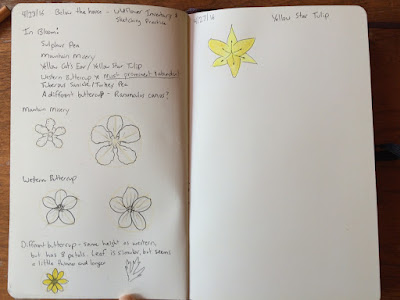 4/27/16 Below the house - Wildflower Inventory &
Sketching Practice
In Bloom:
Sulphur Pea
Mountain Misery
Yellow Cat's Ear/Yellow Star Tulip
Western Buttercup * Most prominent & abundant
Tuberous Sanicle/Turkey Pea
A different buttercup - Ranunculus canus?
Mountain Misery
Western Buttercup
Different buttercup - same height as western,
but has 8 petals. Leaf is similar, but seems
a little thinner and longer
4/27/16 Yellow Star Tulip